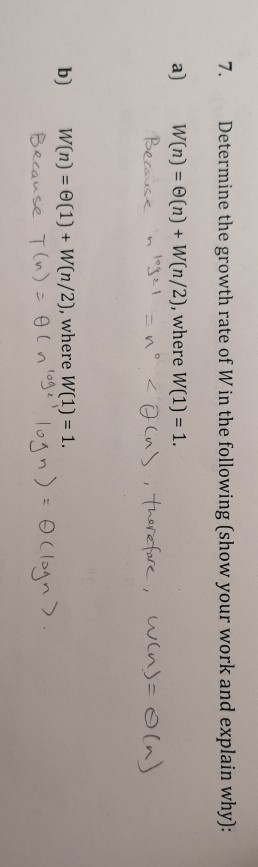 7. Determine the growth rate of W in the following (show your work and explain why):
a) W(n) = Θ(n) + W(n/2), where W(1) = 1.
Because n^log₂1 = n⁰ < Θ(n), therefore, W(n) = Θ(n)
b) W(n) = Θ(1) + W(n/2), where W(1) = 1.
Because T(n) = Θ(n^log₂1 logn) = Θ(logn).